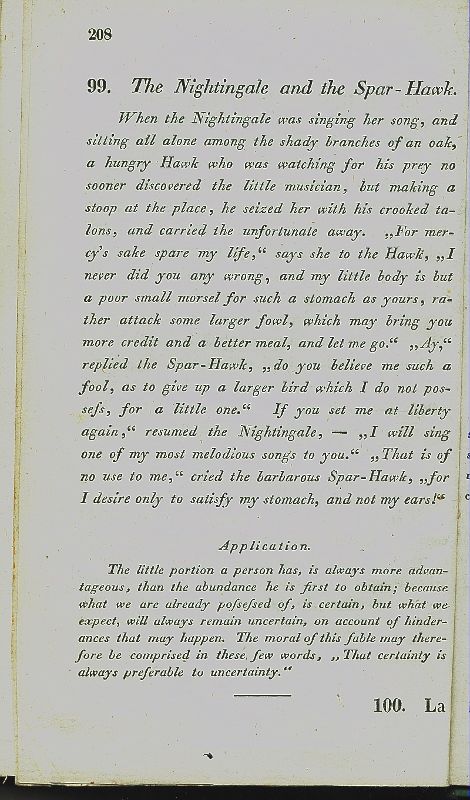 208
99. The Nightingale and the Spar-Hawk.
When the Nightingale was singing her song, and
sitting all alone among the shady branches of an oak,
a hungry Hawk who was watching for his prey no
sooner discovered the little musician, but making a
stoop at the place, he seized her with his crooked ta-
lons, and carried the unfortunate away. „For mer-
cy's sake spare my life,“ says she to the Hawk, „I
never did you any wrong, and my little body is but
a poor small morsel for such a stomach as yours, ra-
ther attack some larger fowl, which may bring you
more credit and a better meal, and let me go.“ „Ay,“
replied the Spar-Hawk, „do you believe me such a
fool, as to give up a larger bird which I do not pos-
seſs, for a little one.“ If you set me at liberty
again,“ resumed the Nightingale, — „I will sing
one of my most melodious songs to you.“ „That is of
no use to me,“ cried the barbarous Spar-Hawk, „for
I desire only to satisfy my stomach, and not my ears!“
Application.
The little portion a person has, is always more advan-
tageous, than the abundance he is first to obtain; because
what we are already poſseſsed of, is certain, but what we
expect, will always remain uncertain, on account of hinder-
ances that may happen. The moral of this fable may there-
fore be comprised in these few words, „That certainty is
always preferable to uncertainty.“
100. La